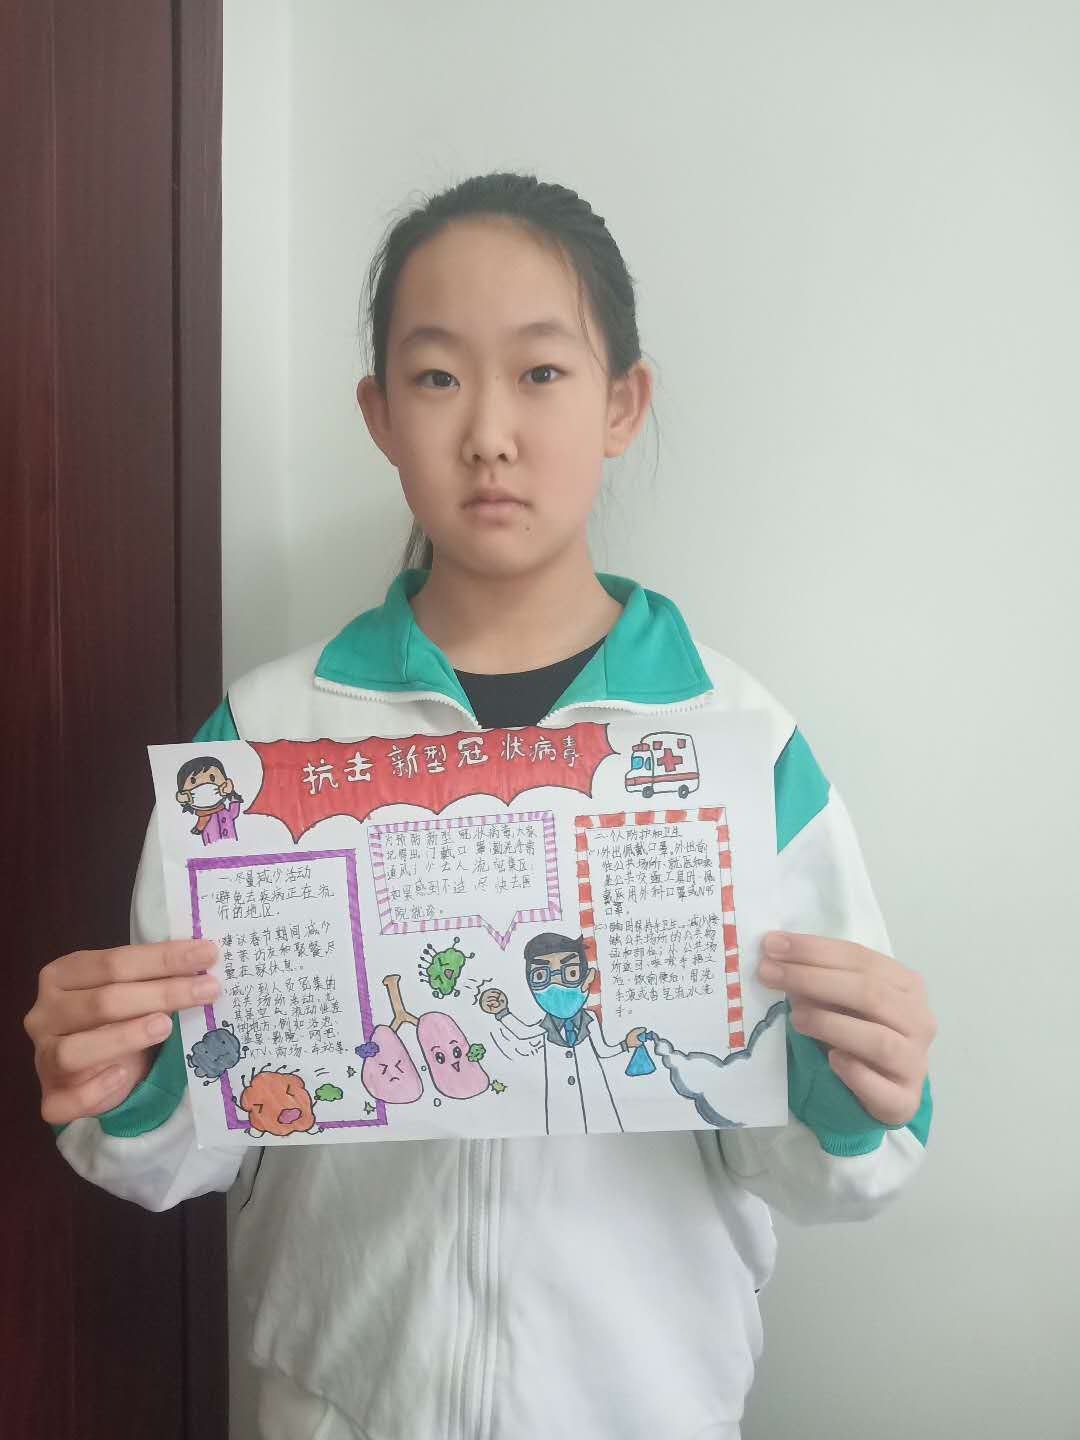 抗击新型冠状病毒
为预防新型冠状病毒,大家
记得出门戴口罩勤洗手常
通风,少去人流密集区,
如果感到不适,尽快去医
院就诊。
一、尽量减少活动
避免去疾病正在流
行的地区。
建议春节期间减少
走亲访友和聚餐,尽
量在家休息。
减少到人员密集的
公共场所活动,尤
其是空气流动性差
的地方,例如浴池、
温泉、影院、网吧、
KTV、商场、车站等。
二、个人防护和卫生
外出佩戴口罩。外出前
往公共场所、就医和乘
坐公共交通工具时,佩
戴医用外科口罩或N95
口罩。
保持手卫生。减少接
触公共场所的公共物
品和部位;从公共场
所返回、咳嗽手捂之
后、饭前便后,用洗
手液或香皂流水洗
手。